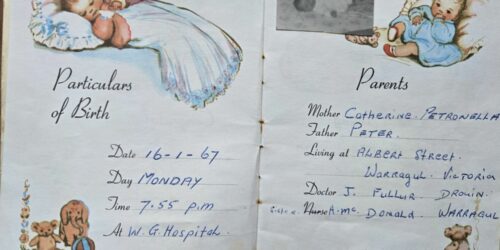 Particulars
of Birth
Date 16-1-67
Day MONDAY
Time 7.55 p.m
At W. G. Hospital.
Parents
Mother Catherine. PETRONELLA
Father PETER.
Living at ALBERT STREET.
Warragul. Victoria
Doctor J. FULLUR. DROUIN.
Nurse H. Mc DONALD. WARRAGUL